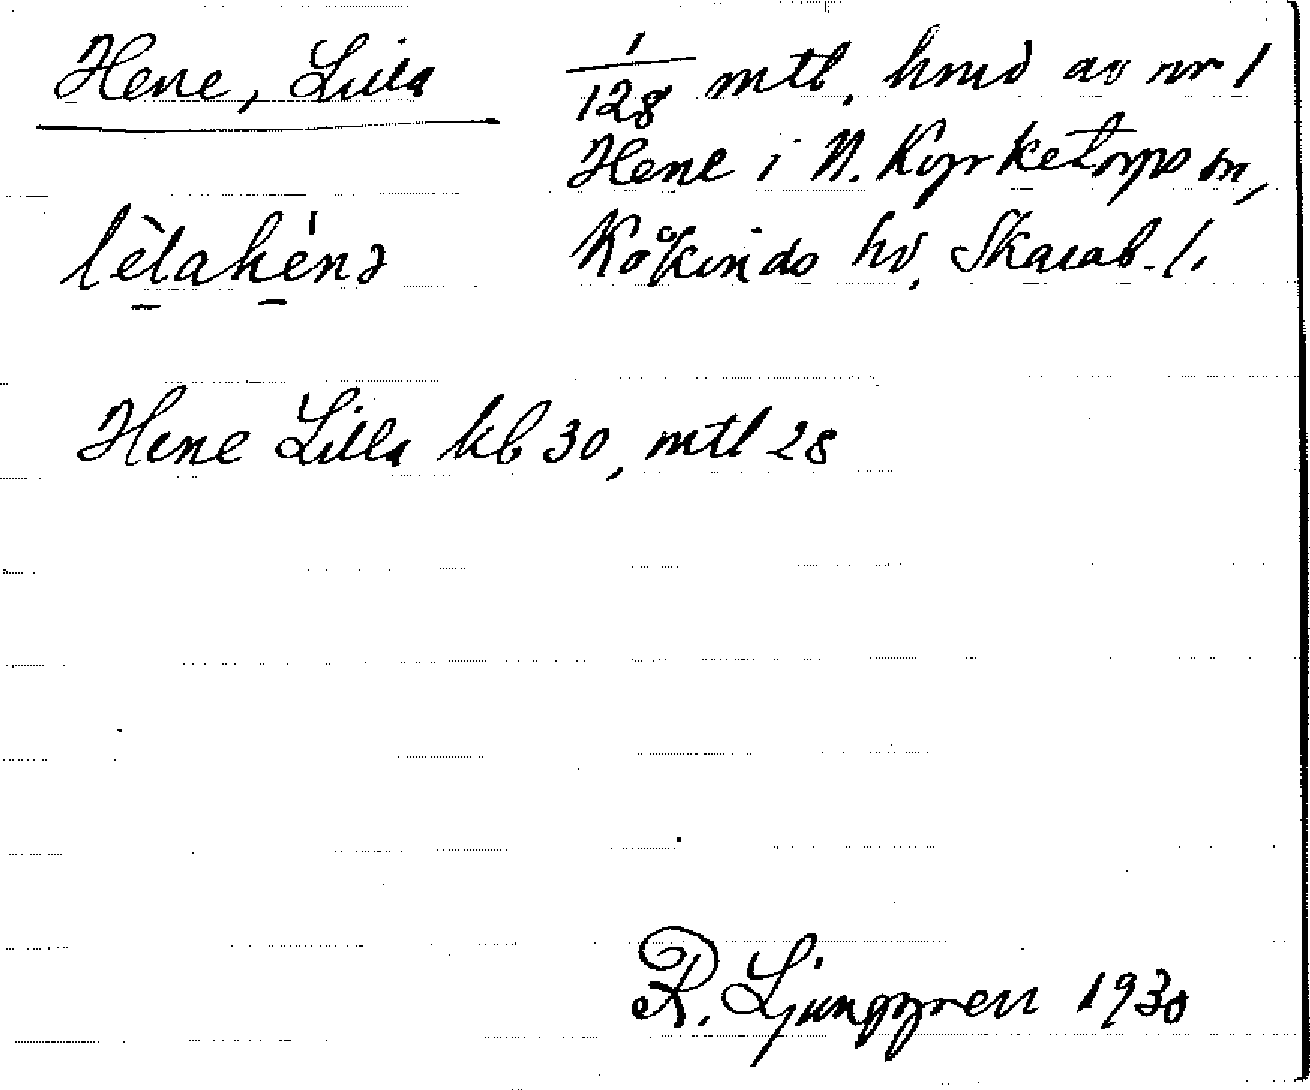 Hene, Lilla
1/128 mtl. hmd av nr 1
Hene i N. Kyrketorps sn,
Kåkinds hd. Skarab. l.
lètahénə
Hene Lilla kb 30, mtl 28
R. Ljunggren 1930